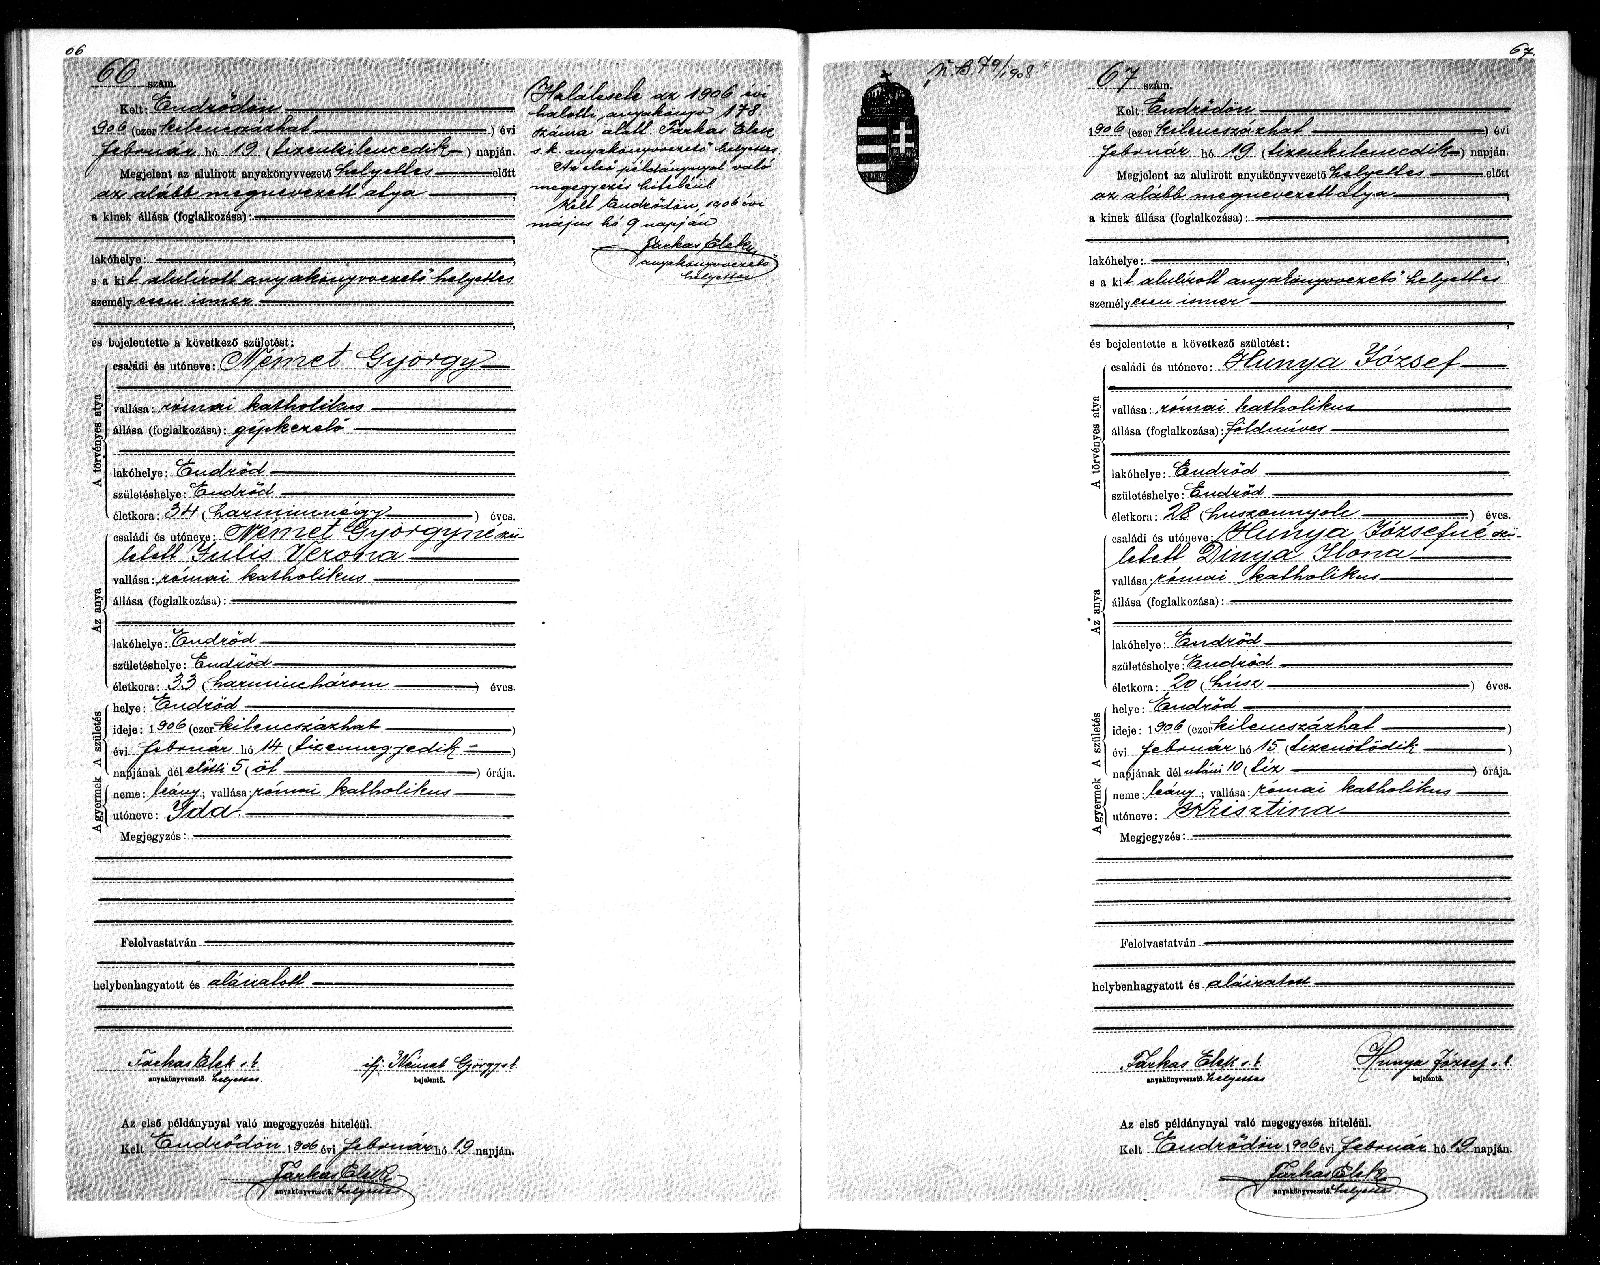 66
66 szám.
Kelt Endrődön
1906 (ezer kilencszázhat) évi
február hó 19 (tizenkilencedik) napján.
Megjelent az alulirott anyakönyvvezető helyettes előtt
az alább megnevezett atya
a kinek állása (foglalkozása):
lakóhelye:
s a kit alulirott anyakönyvvezető helyettes
személyesen ismer
és bejelentette a következő születést:
A törvényes atya
családi és utóneve: Német György
vallása: római katholikus
állása (foglalkozása): gépkezelő
lakóhelye: Endrőd
születéshelye: Endrőd
életkora: 34 (harmincnégy) éves.
Az anya
családi és utóneve: Német Györgyné szü-
letett Gulis Verona
vallása: római katholikus
állása (foglalkozása):
lakóhelye: Endrőd
születéshelye: Endrőd
életkora: 33 (harminchárom) éves.
A gyermek A születés
helye: Endrőd
ideje: 1906 (ezer kilencszázhat)
évi február hó 14 (tizennegyedik)
napjának dél előtti 5 (öt) órája.
neme: leány; vallása: római katholikus
utóneve: Ida
Megjegyzés:
Felolvastatván
helybenhagyatott és aláiratott
Farkas Elek s.k. ifj. Német György s.k.
anyakönyvvezető helyettes bejelentő.
Az első példánynyal való megegyezés hiteléül.
Kelt Endrődön 1906 évi február hó 19 napján.
Farkas Elek
anyakönyvvezető helyettes
Halálesete az 1906 évi
halotti anyakönyv 178
száma alatt Farkas Elek
s.k. anyakönyvvezető helyettes
Az első példánynyal való
megegyezés hiteléül
Kelt Endrődön, 1906 évi
május hó 9 napján
Farkas Elek
anyakönyvvezető
helyettes
67.
79/1908
67 szám.
Kelt Endrődön
1906 (ezer kilencszázhat) évi
február hó 19 (tizenkilencedik) napján.
Megjelent az alulirott anyakönyvvezető helyettes előtt
az alább megnevezett atya
a kinek állása (foglalkozása):
lakóhelye:
s a kit alulirott anyakönyvvezető helyettes
személyesen ismer
és bejelentette a következő születést:
A törvényes atya
családi és utóneve: Hunya József
vallása: római katholikus
állása (foglalkozása): földmíves
lakóhelye: Endrőd
születéshelye: Endrőd
életkora: 28 (huszonnyolc) éves.
Az anya
családi és utóneve: Hunya Józsefné szü-
letett Dinya Ilona
vallása: római katholikus
állása (foglalkozása):
lakóhelye: Endrőd
születéshelye: Endrőd
életkora: 20 (húsz) éves.
A gyermek A születés
helye: Endrőd
ideje: 1906 (ezer kilencszázhat)
évi február hó 15 (tizenötödik)
napjának dél utáni 10 (tíz) órája.
neme: leány; vallása: római katholikus
utóneve: Krisztina
Megjegyzés:
Felolvastatván
helybenhagyatott és aláiratott
Farkas Elek s.k. Hunya József s.k.
anyakönyvvezető helyettes bejelentő.
Az első példánynyal való megegyezés hiteléül.
Kelt Endrődön 1906 évi február hó 19 napján.
Farkas Elek
anyakönyvvezető helyettes